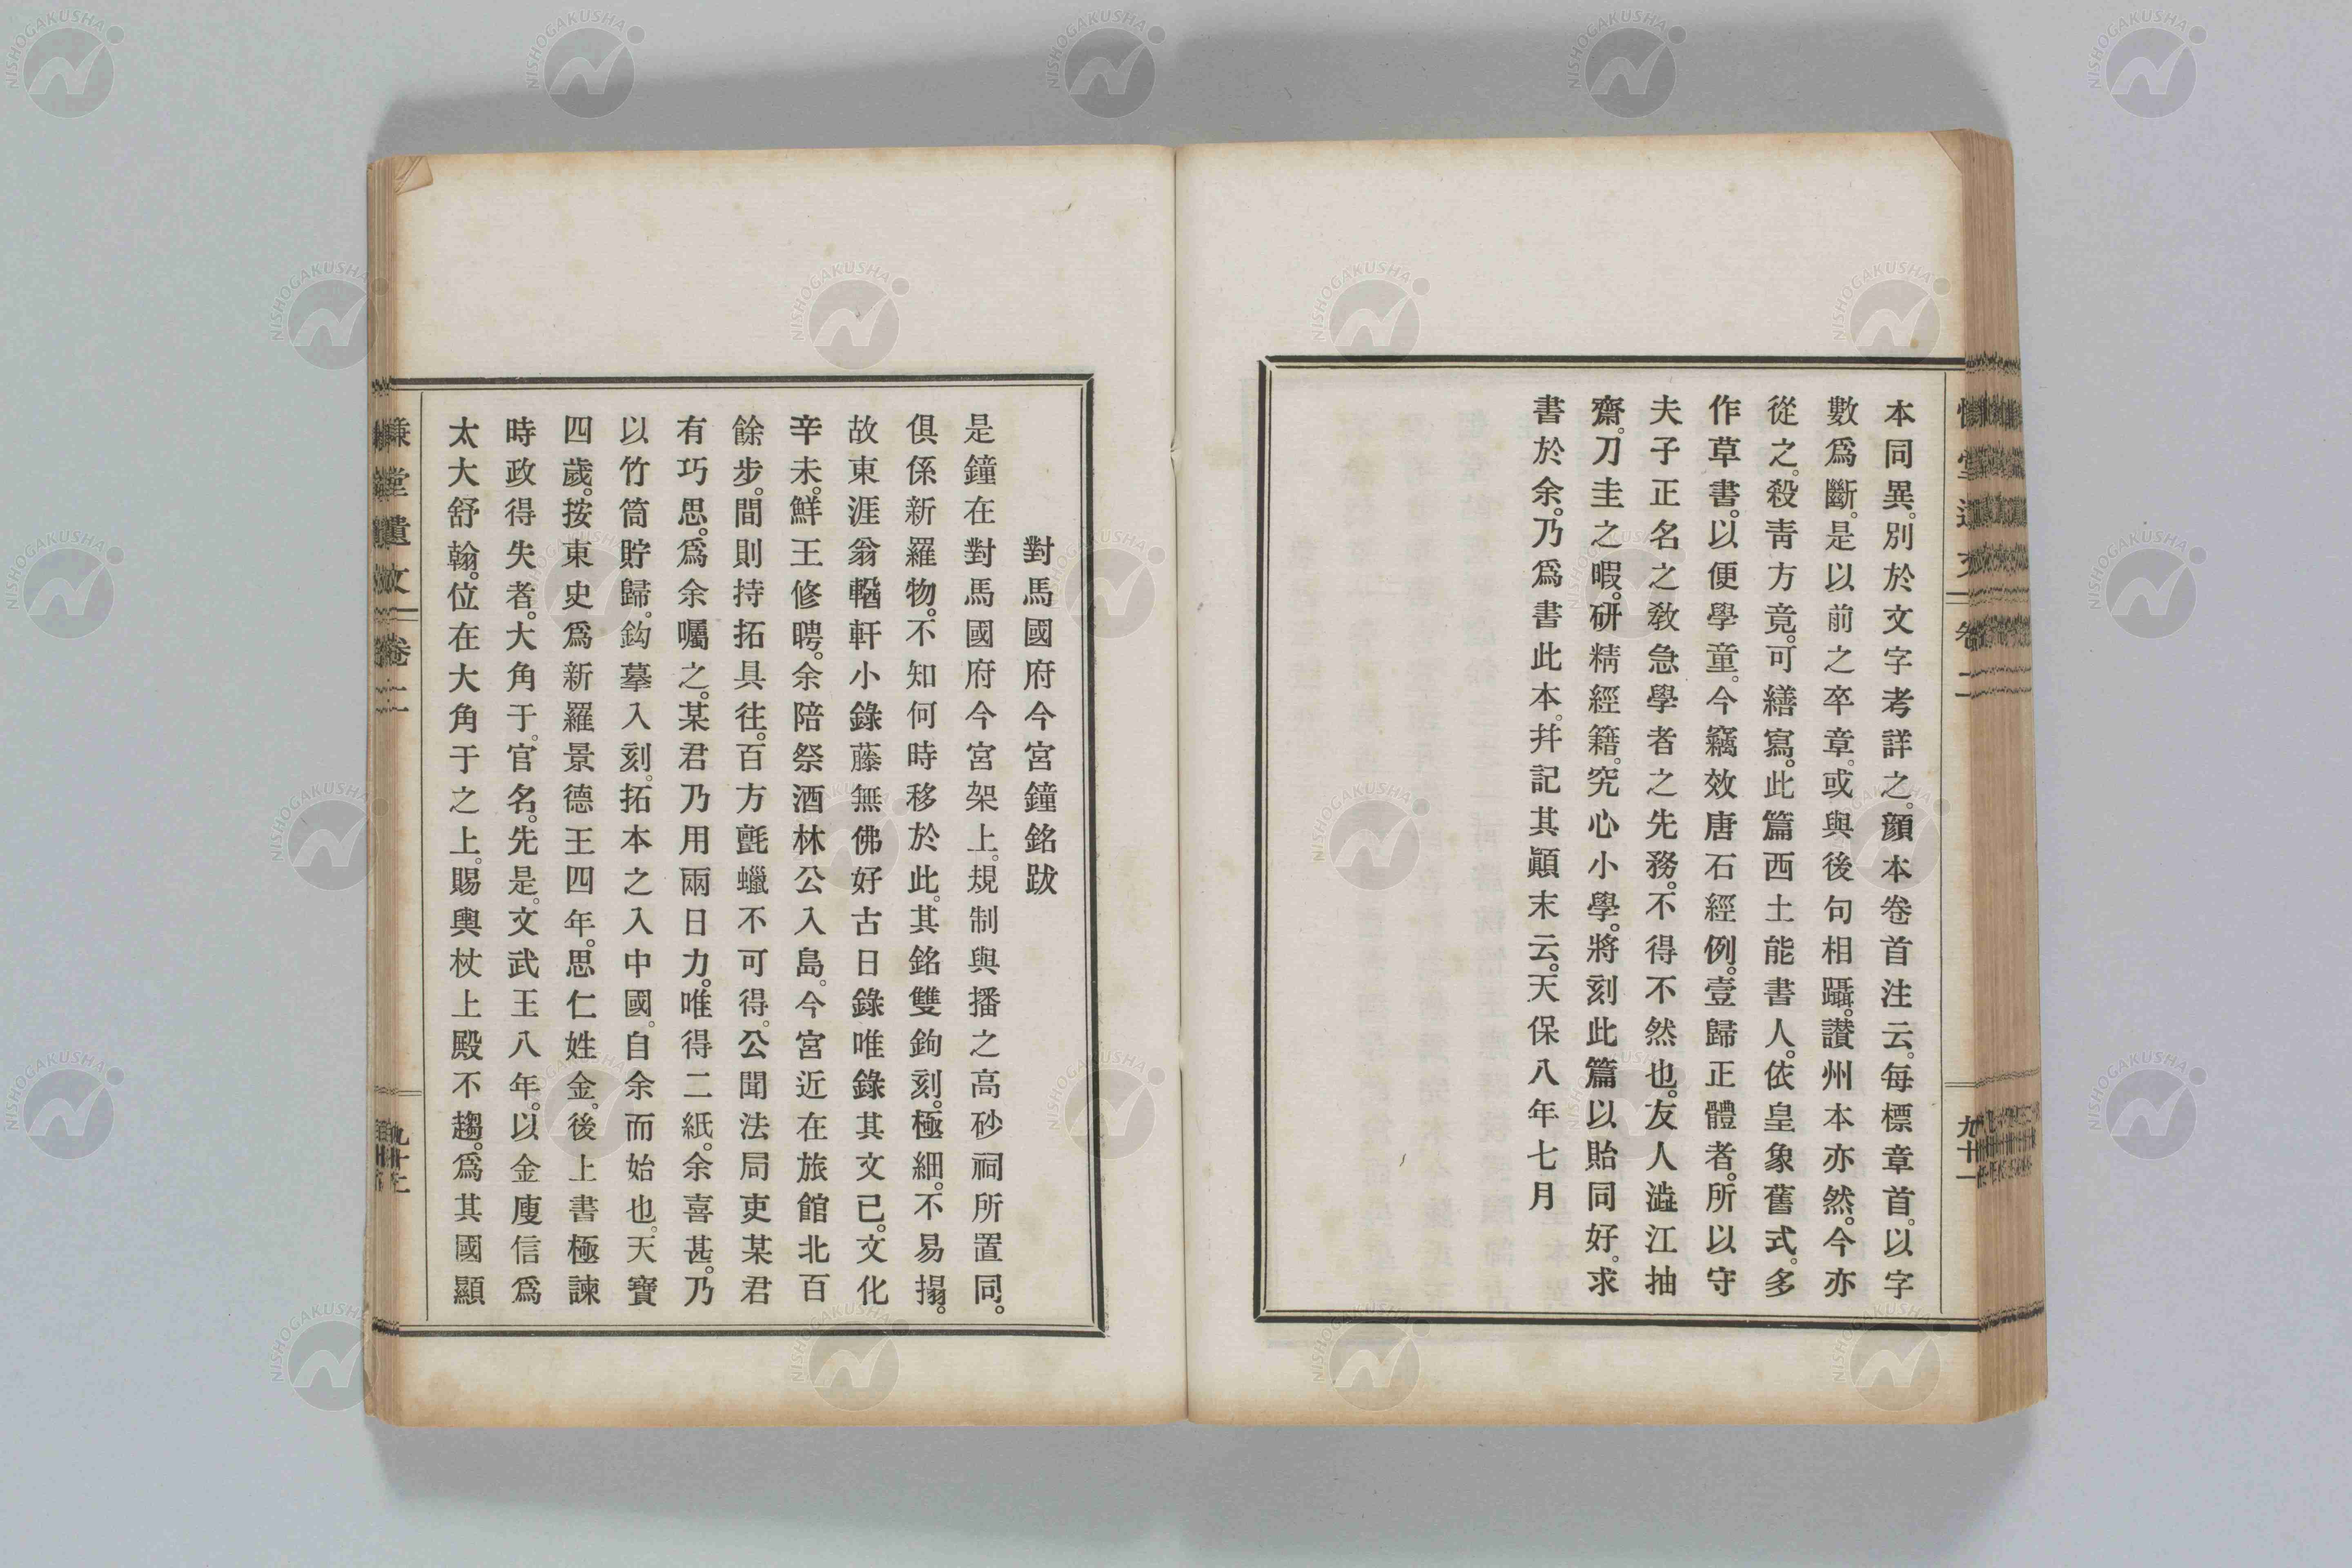 本同異。別於文字考詳之。顏本卷首注云。每標章首。以字
數爲斷。是以前之卒章。或與後句相躡。讃州本亦然。今亦
從之。殺靑方竟。可繕寫。此篇西土能書人。依皇象舊式。多
作草書。以便學童。今竊效唐石經例。壹歸正體者。所以守
夫子正名之敎急學者之先務。不得不然也。友人澁江抽
齋。刀圭之暇。硏精經籍。究心小學。將刻此篇以貽同好。求
書於余。乃爲書此本。幷記其顚末云。天保八年七月
九十一
對馬國府今宮鐘銘跋
是鐘在對馬國府今宮架上。規制與播之高砂祠所置同。
俱係新羅物。不知何時移於此。其銘雙鉤刻。極細。不易搨。
故東涯翁輶軒小錄藤無佛好古日錄唯錄其文已。文化
辛未。鮮王修聘。余陪祭酒林公入島。今宮近在旅館北百
餘步。間則持拓具往。百方氈蠟不可得。公聞法局吏某君
有巧思。爲余囑之。某君乃用兩日力。唯得二紙。余喜甚。乃
以竹筒貯歸。鈎摹入刻。拓本之入中國。自余而始也。天寶
四歲。按東史爲新羅景德王四年。思仁姓金。後上書極諫
時政得失者。大角于。官名。先是。文武王八年。以金庾信爲
太大舒翰。位在大角于之上。賜輿杖上殿不趨。爲其國顯
慊堂遺文 卷二